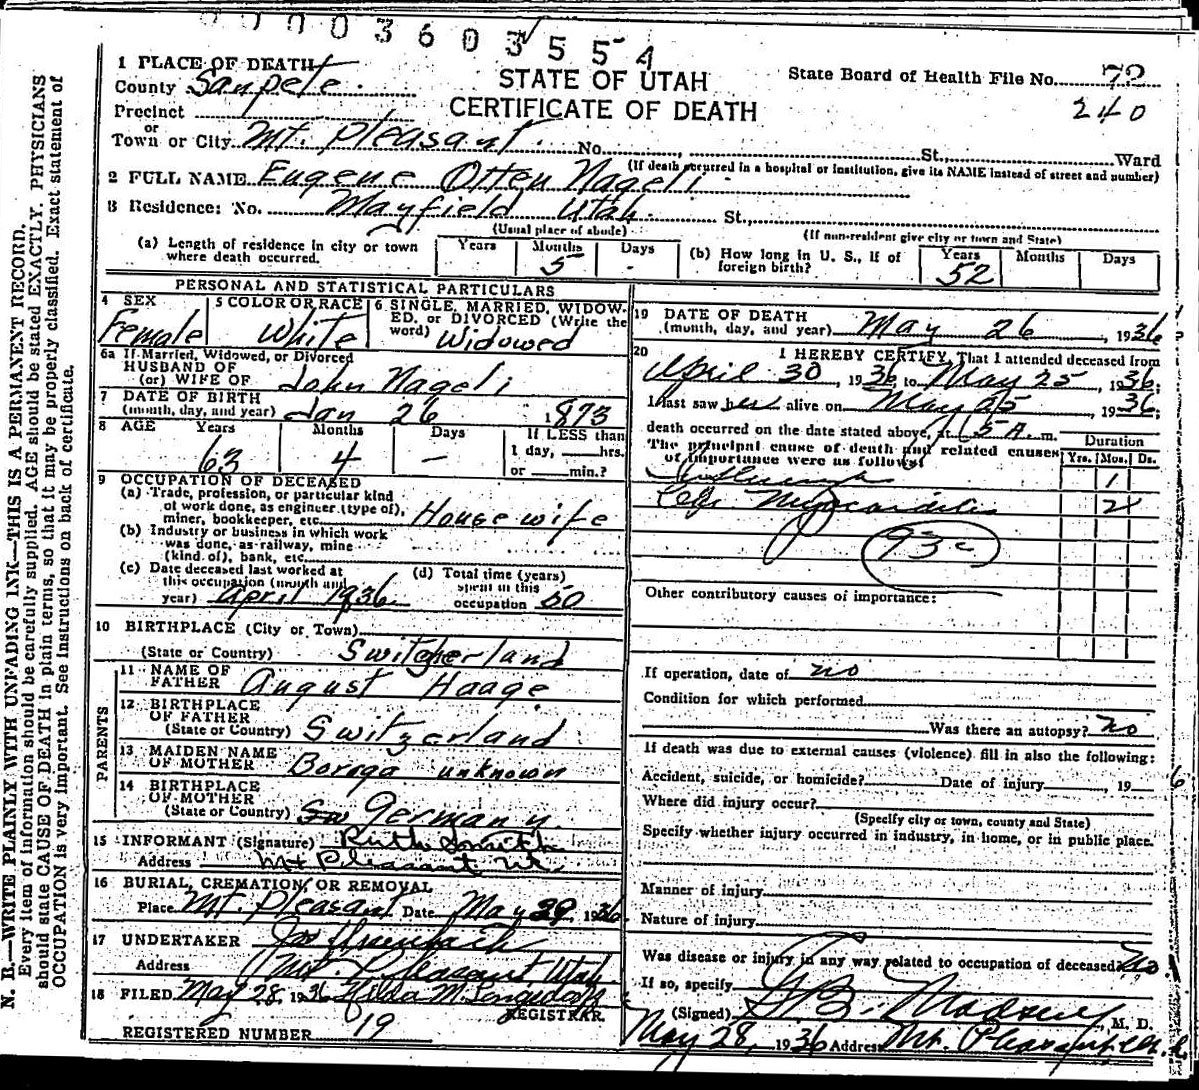 00003603554
1 PLACE OF DEATH
County Sanpete.
STATE OF UTAH
State Board of Health File No. 72
CERTIFICATE OF DEATH
240
Precinct
or
Town or City Mt. Pleasant. No. St., Ward
(If death occurred in a hospital or institution, give its NAME instead of street and number)
2 FULL NAME Eugene Otten Nageli.
3 Residence: No. Mayfield Utah. St.,
(Usual place of abode) (If non-resident give city or town and State)
(a) Length of residence in city or town where death occurred. Years Months 5 Days -
(b) How long in U. S., if of foreign birth? Years 52 Months Days
PERSONAL AND STATISTICAL PARTICULARS
4 SEX Female
5 COLOR OR RACE White
6 SINGLE, MARRIED, WIDOWED, or DIVORCED (Write the word) Widowed
6a If Married, Widowed, or Divorced
HUSBAND OF
(or) WIFE OF John Nageli
7 DATE OF BIRTH
(month, day, and year) Jan 26 1873
8 AGE Years 63 Months 4 Days —
If LESS than
1 day, hrs.
or min.?
9 OCCUPATION OF DECEASED
(a) Trade, profession, or particular kind
of work done, as engineer (type of),
miner, bookkeeper, etc. Housewife
(b) Industry or business in which work
was done, as railway, mine
(kind of), bank, etc.
(c) Date deceased last worked at
this occupation (month and
year) April 1936
(d) Total time (years)
spent in this
occupation 50
10 BIRTHPLACE (City or Town)
(State or Country) Switzerland
PARENTS
11 NAME OF
FATHER August Haage
12 BIRTHPLACE
OF FATHER
(State or Country) Switzerland
13 MAIDEN NAME
OF MOTHER unknown
14 BIRTHPLACE
OF MOTHER
(State or Country) Sw Germany.
15 INFORMANT (Signature) Ruth Smith
Address Mt Pleasant Ut.
16 BURIAL, CREMATION, OR REMOVAL
Place Mt. Pleasant Date May 29, 1936
17 UNDERTAKER
Address Mt. Pleasant, Utah
18 FILED May 28, 1936 Hilda M.
REGISTRAR
REGISTERED NUMBER 19
19 DATE OF DEATH
(month, day, and year) May 26, 1936
20 I HEREBY CERTIFY, That I attended deceased from
April 30, 1936, to May 25, 1936;
I last saw her alive on May 25, 1936;
death occurred on the date stated above, at 5 A. m.
The principal cause of death and related causes
of importance were as follows:
Duration
Yrs. Mos. Ds.
1
Myocarditis 2
93c
Other contributory causes of importance:
If operation, date of no
Condition for which performed
Was there an autopsy? no
If death was due to external causes (violence) fill in also the following:
Accident, suicide, or homicide? Date of injury, 19 6
Where did injury occur?
(Specify city or town, county and State)
Specify whether injury occurred in industry, in home, or in public place.
Manner of injury
Nature of injury
Was disease or injury in any way related to occupation of deceased? No.
If so, specify
(Signed) Madsen, M. D.
May 28, 1936 Address Mt. Pleasant, Ut.
N. B.—WRITE PLAINLY WITH UNFADING INK—THIS IS A PERMANENT RECORD.
Every item of information should be carefully supplied. AGE should be stated EXACTLY. PHYSICIANS
should state CAUSE OF DEATH in plain terms, so that it may be properly classified. Exact statement of
OCCUPATION is very important. See instructions on back of certificate.